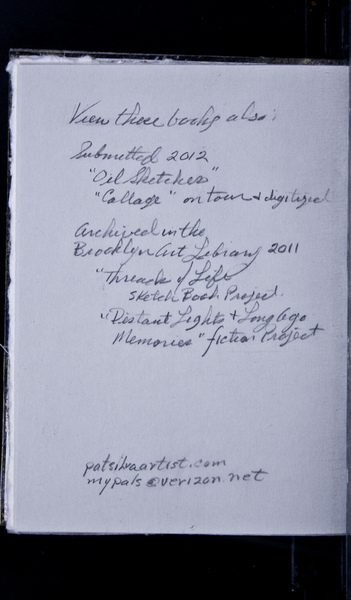 View these books also:
Submitted 2012
"Oil Sketches"
"Collage" on tour & digitized
Archived in the
Brooklyn Art Library 2011
"Threads of Life"
Sketch Book Project.
"Distant Lights & Long ago
Memories" fiction Project
patsilvaartist.com
mypals@verizon.net